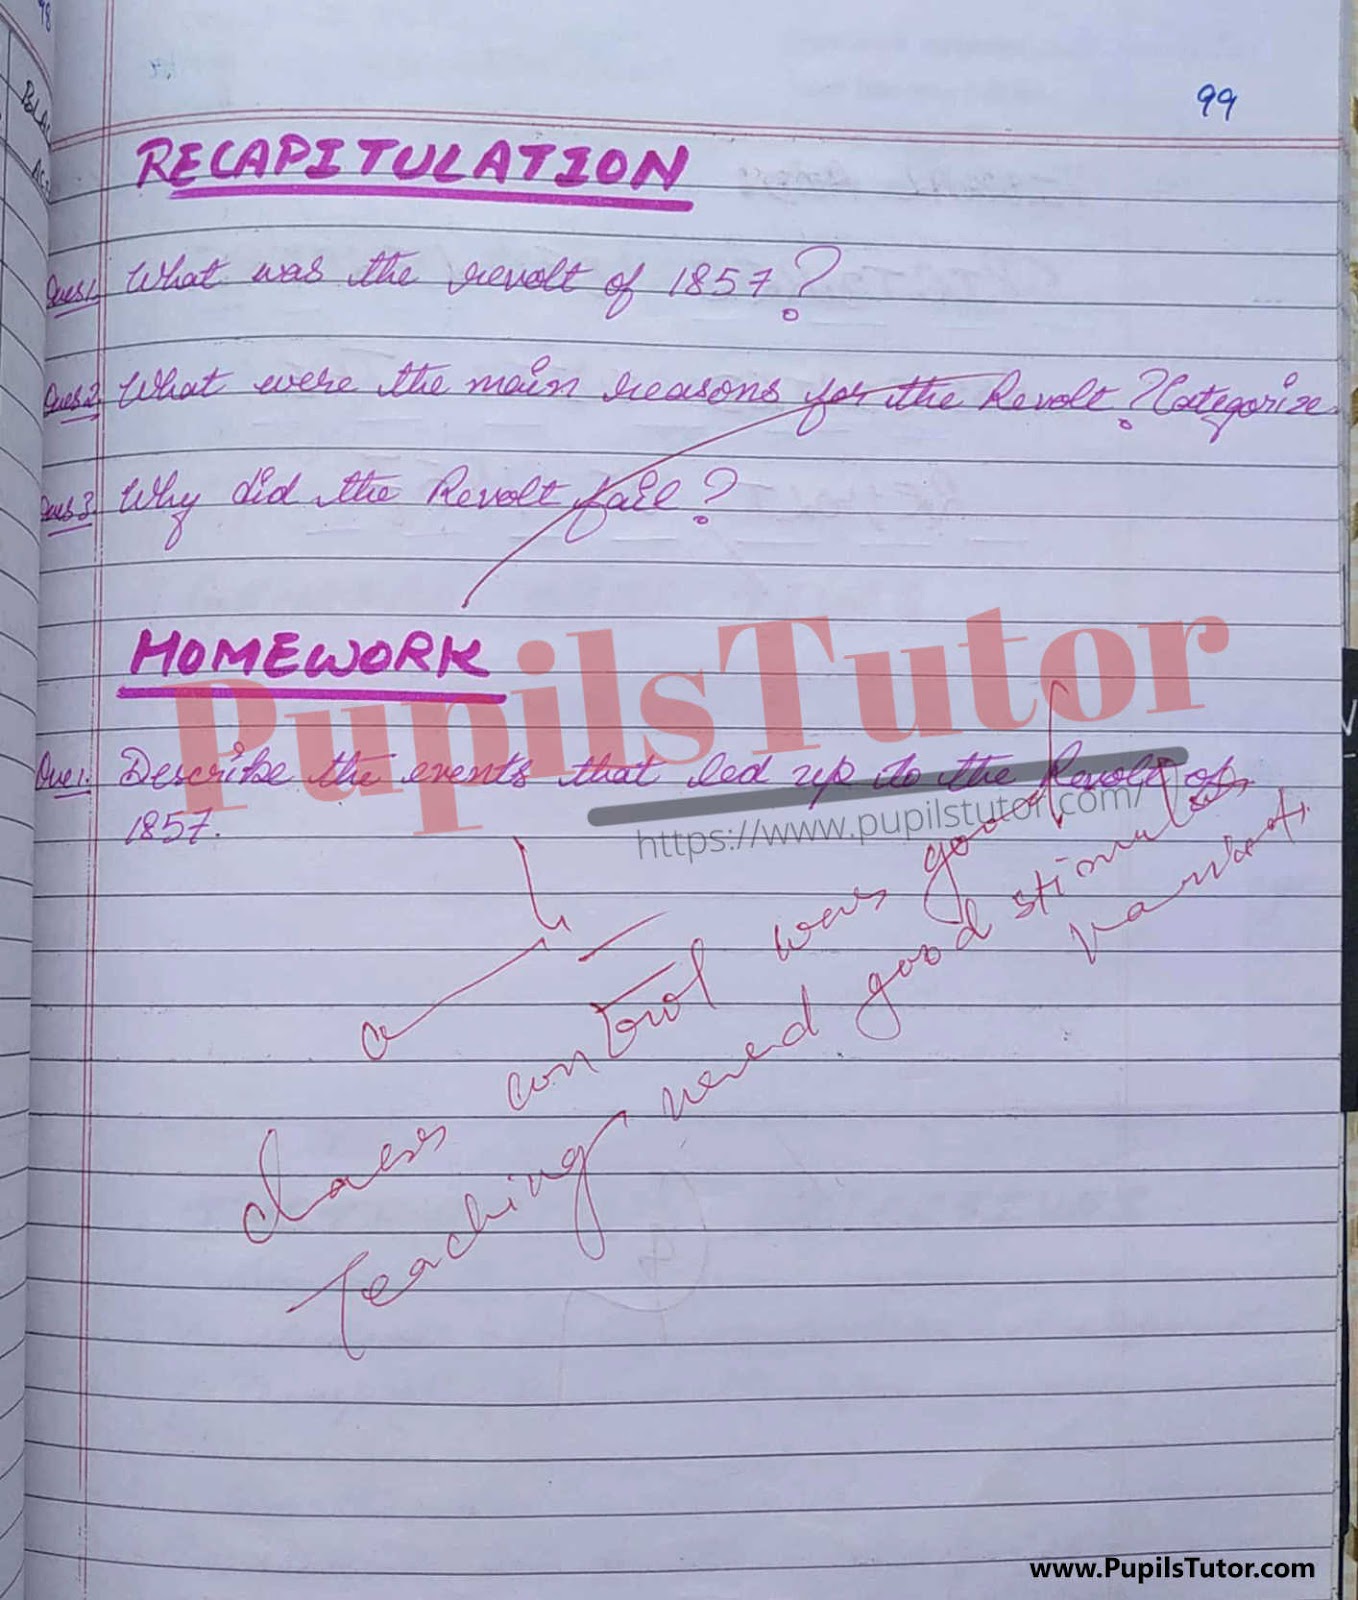 98
BLA
99
RECAPITULATION
Ques1. What was the revolt of 1857?
Ques2. What were the main reasons for the Revolt? Categorize.
Ques3. Why did the Revolt fail?
HOMEWORK
PupilsTutor
Que1. Describe the events that led up to the Revolt of
1857.
https://www.pupilstutor.com/
Class control was good
Teaching need good stimulus
www.PupilsTutor.com